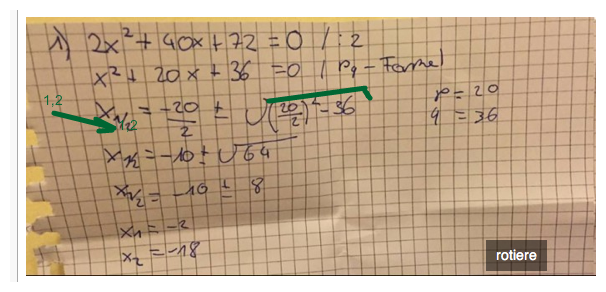 1) 2x² + 40x + 72 = 0 / : 2
x² + 20x + 36 = 0 | pq-Formel
p = 20
1,2
x1/2 = -20/2 ± √((20/2)² - 36
q = 36
1,2
x1/2 = -10 ± √64
x1/2 = -10 ± 8
x1 = -2
x2 = -18
rotiere